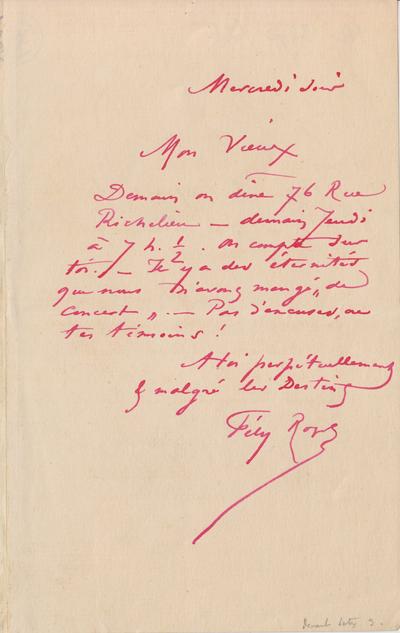 Mercredi soir
Mon Vieux
Demain on dine 76 Rue
Richelieu — demain Jeudi
à 7 h. ½. On compte sur
toi. — Il y a des éternités
que nous n'avons mangé „ de
concert „. — Pas d'excuses, ou
tes témoins !
A toi perpétuellement
& malgré les Destins
Fély Rops